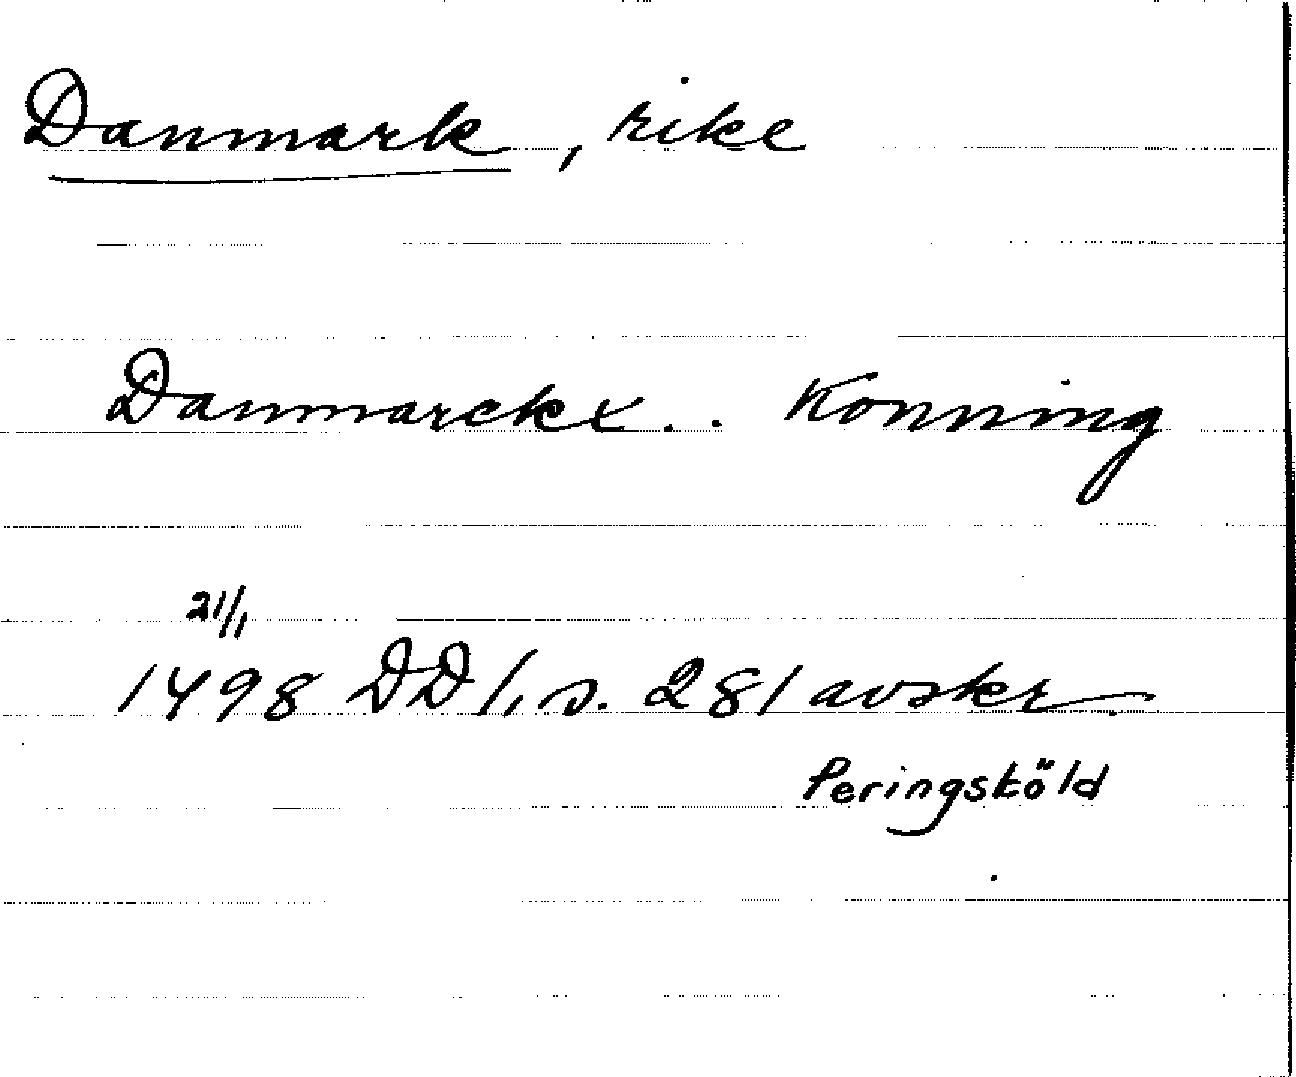 Danmark, rike
Danmarckx . . Konning
21/1
1498 DD/1, s. 281 avskr.
Peringsköld